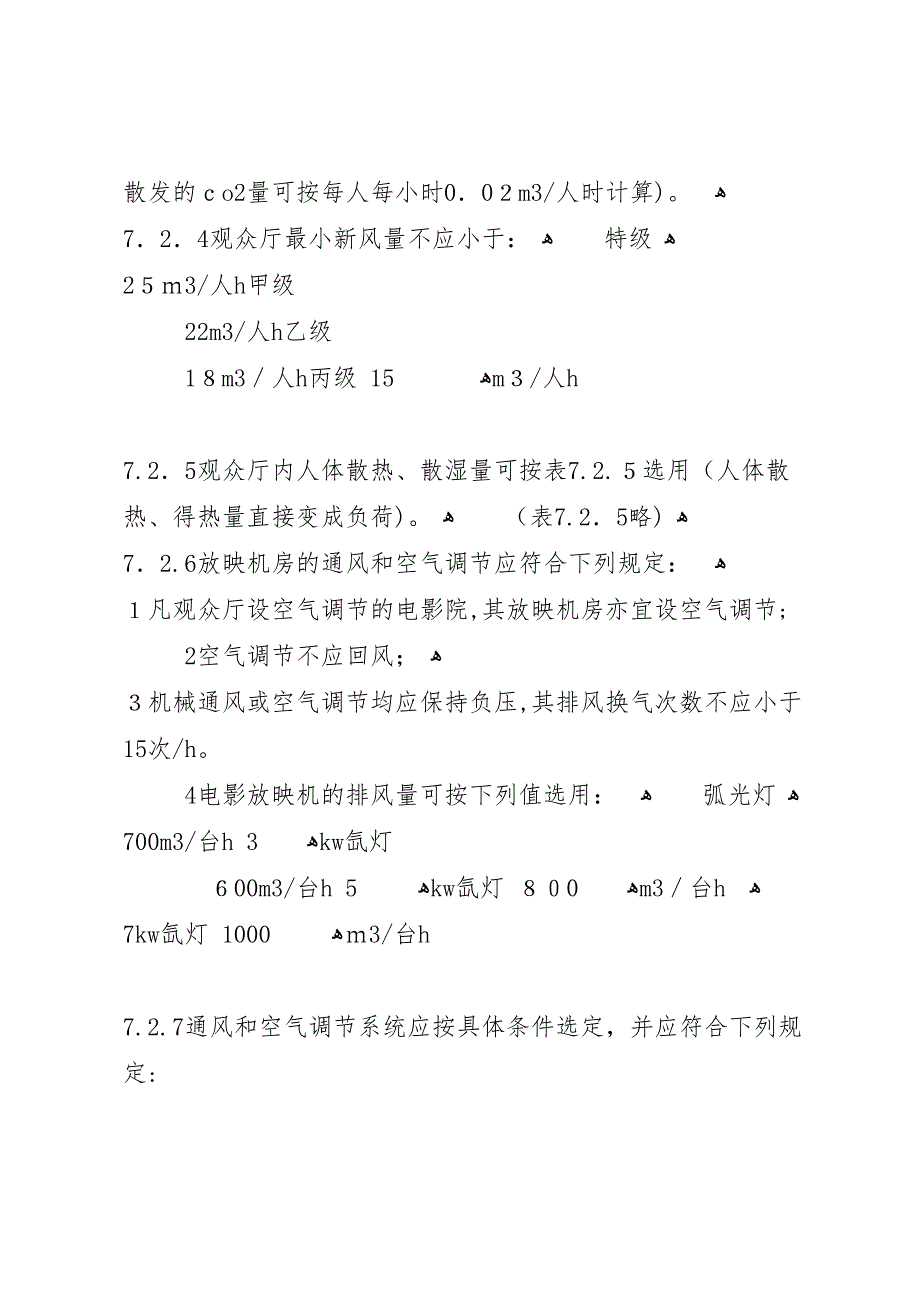 散发的ｃo2量可按每人每小时0．0２m3/人时计算)。 ﻫ
7．2．4观众厅最小新风量不应小于： ﻫ 特级ﻫ
2５ｍ3/人h甲级
22m3/人h乙级
1８m3／人h丙级 15 ﻫm３/人h
7.2．5观众厅内人体散热、散湿量可按表7.2.５选用（人体散
热、得热量直接变成负荷)。 ﻫ （表7.2．5略)ﻫ
7．2.6放映机房的通风和空气调节应符合下列规定： ﻫ
１凡观众厅设空气调节的电影院,其放映机房亦宜设空气调节;
2空气调节不应回风； ﻫ
３机械通风或空气调节均应保持负压,其排风换气次数不应小于
15次/h。
4电影放映机的排风量可按下列值选用： ﻫ 弧光灯ﻫ
700m3/台h 3 ﻫkw氙灯
６00m3/台h 5 ﻫkw氙灯 ８００ ﻫm3／台h ﻫ
7kw氙灯 1000 ﻫｍ3/台h
7.2.7通风和空气调节系统应按具体条件选定，并应符合下列规
定: